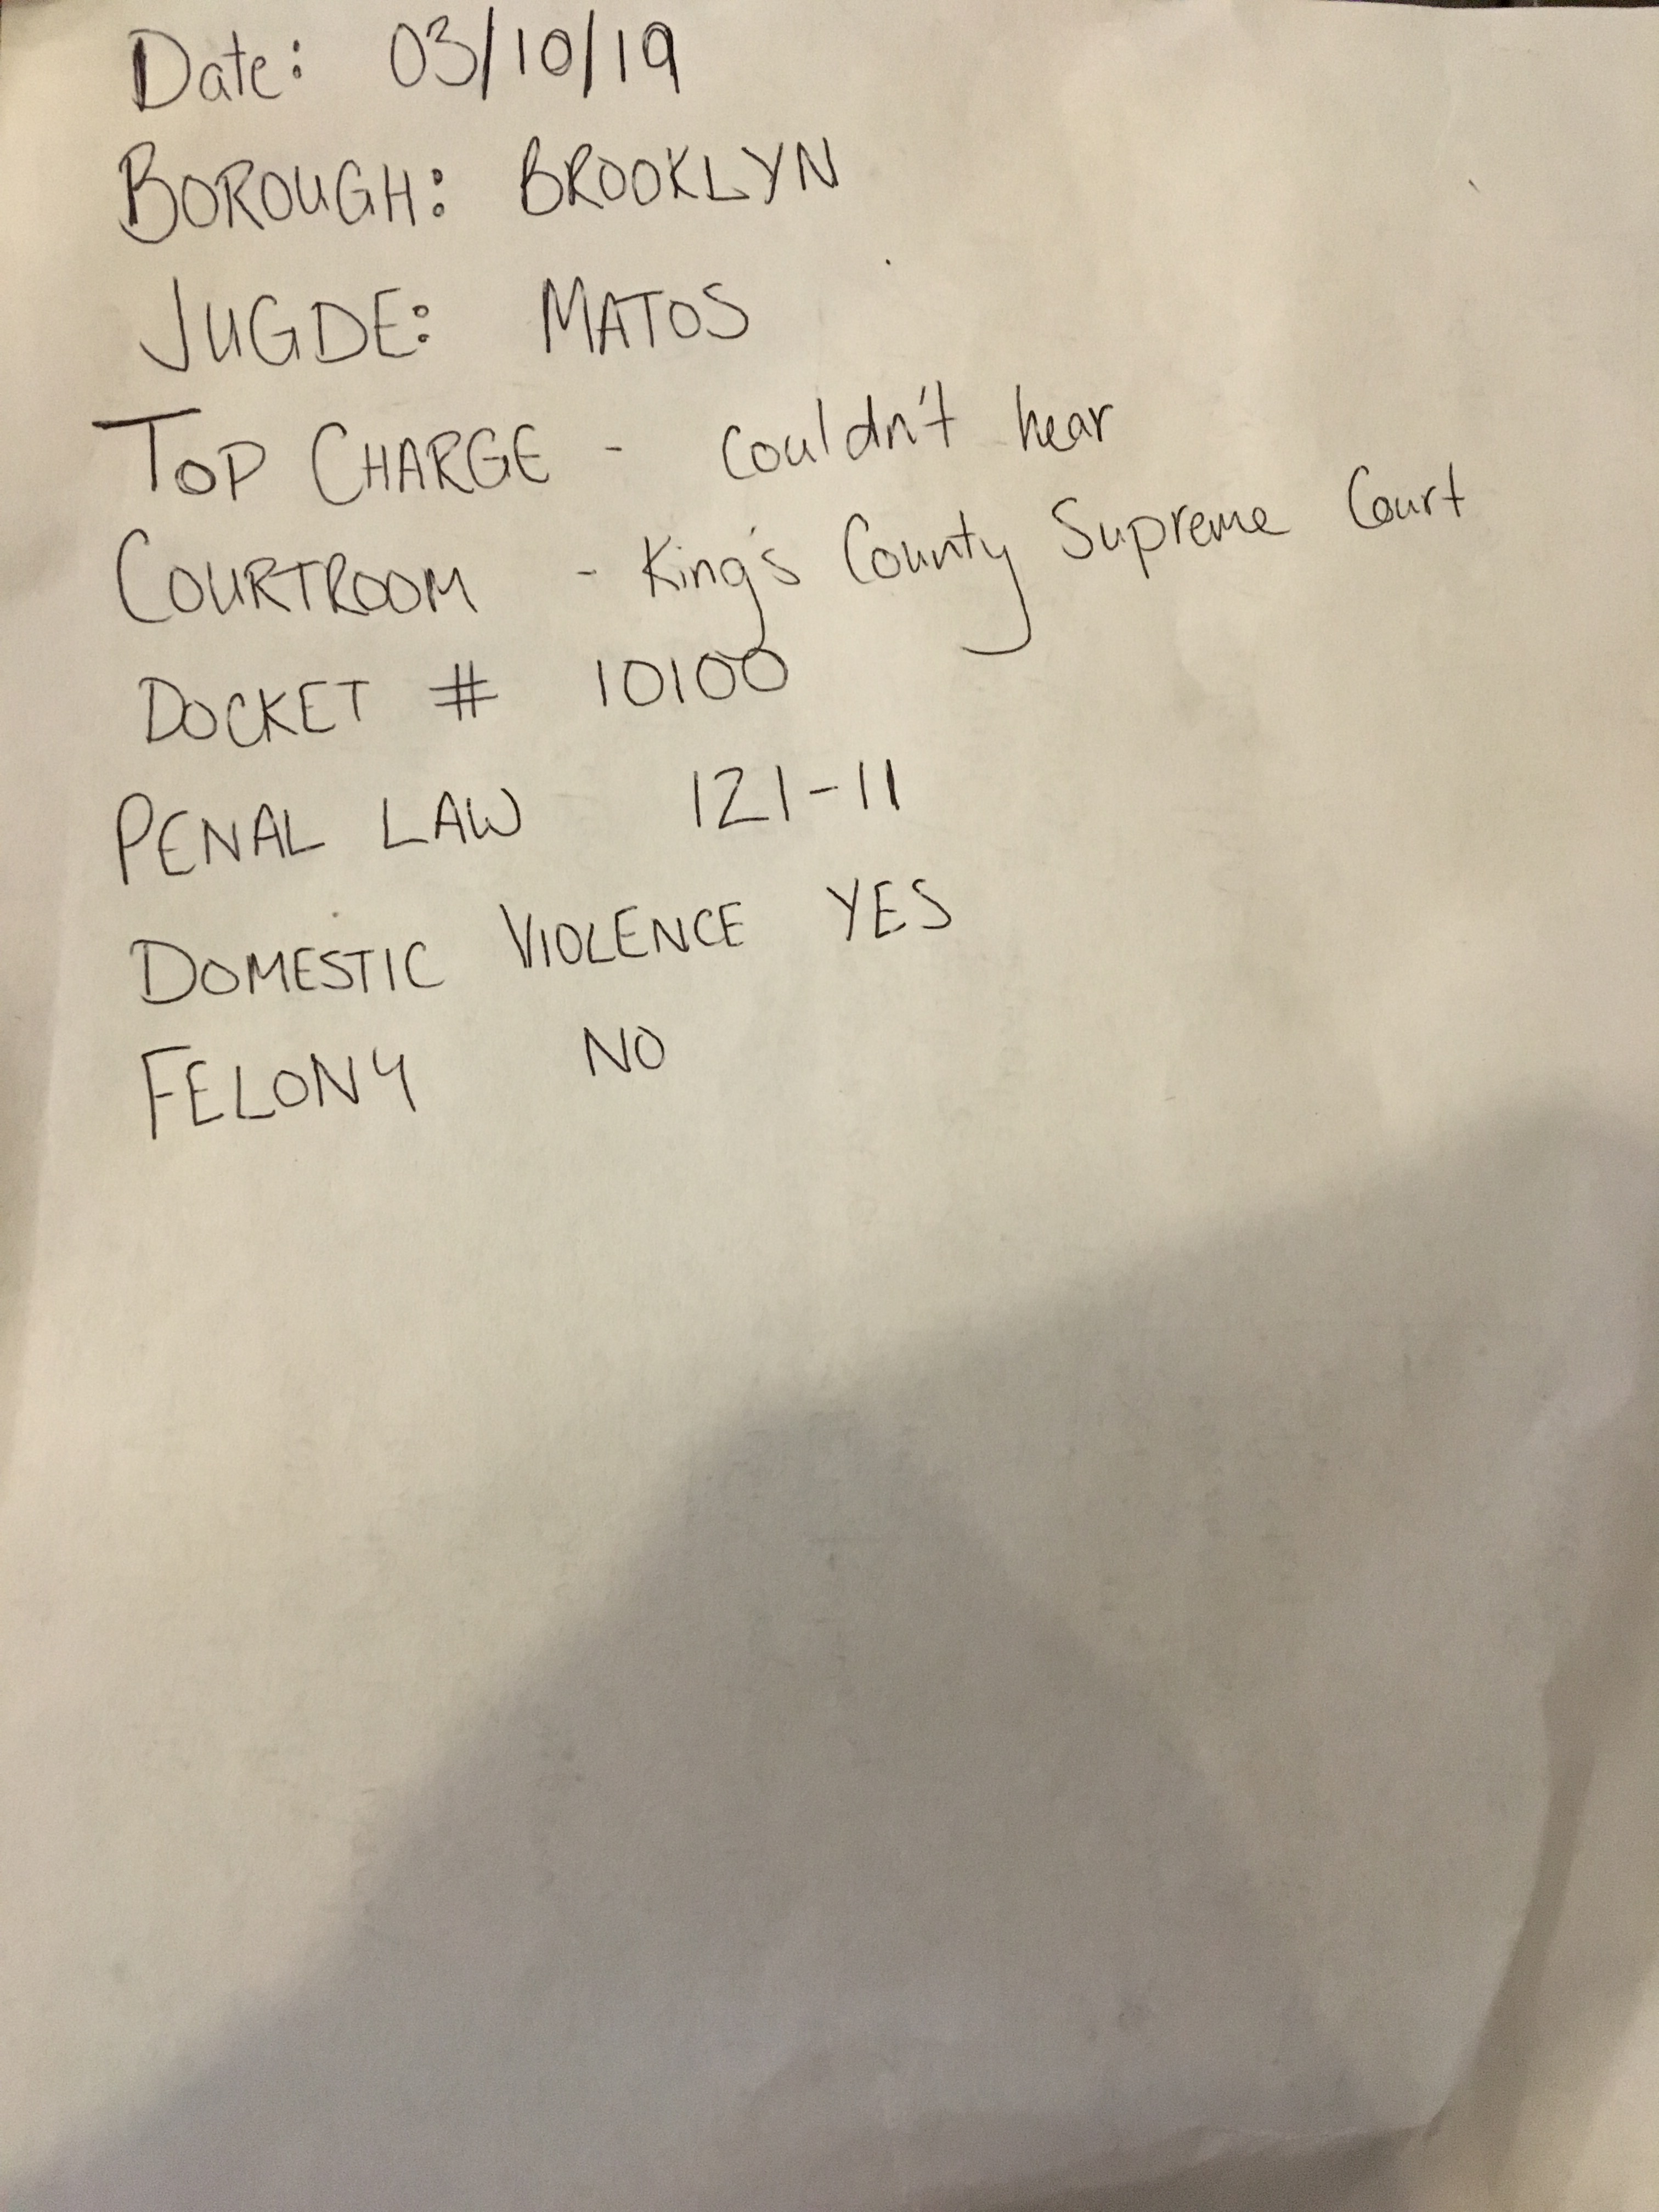 Date: 03/10/19
BOROUGH: BROOKLYN
JUGDE: MATOS
TOP CHARGE - couldn't hear
COURTROOM - King's County Supreme Court
DOCKET # 10100
PENAL LAW 121-11
DOMESTIC VIOLENCE YES
FELONY NO